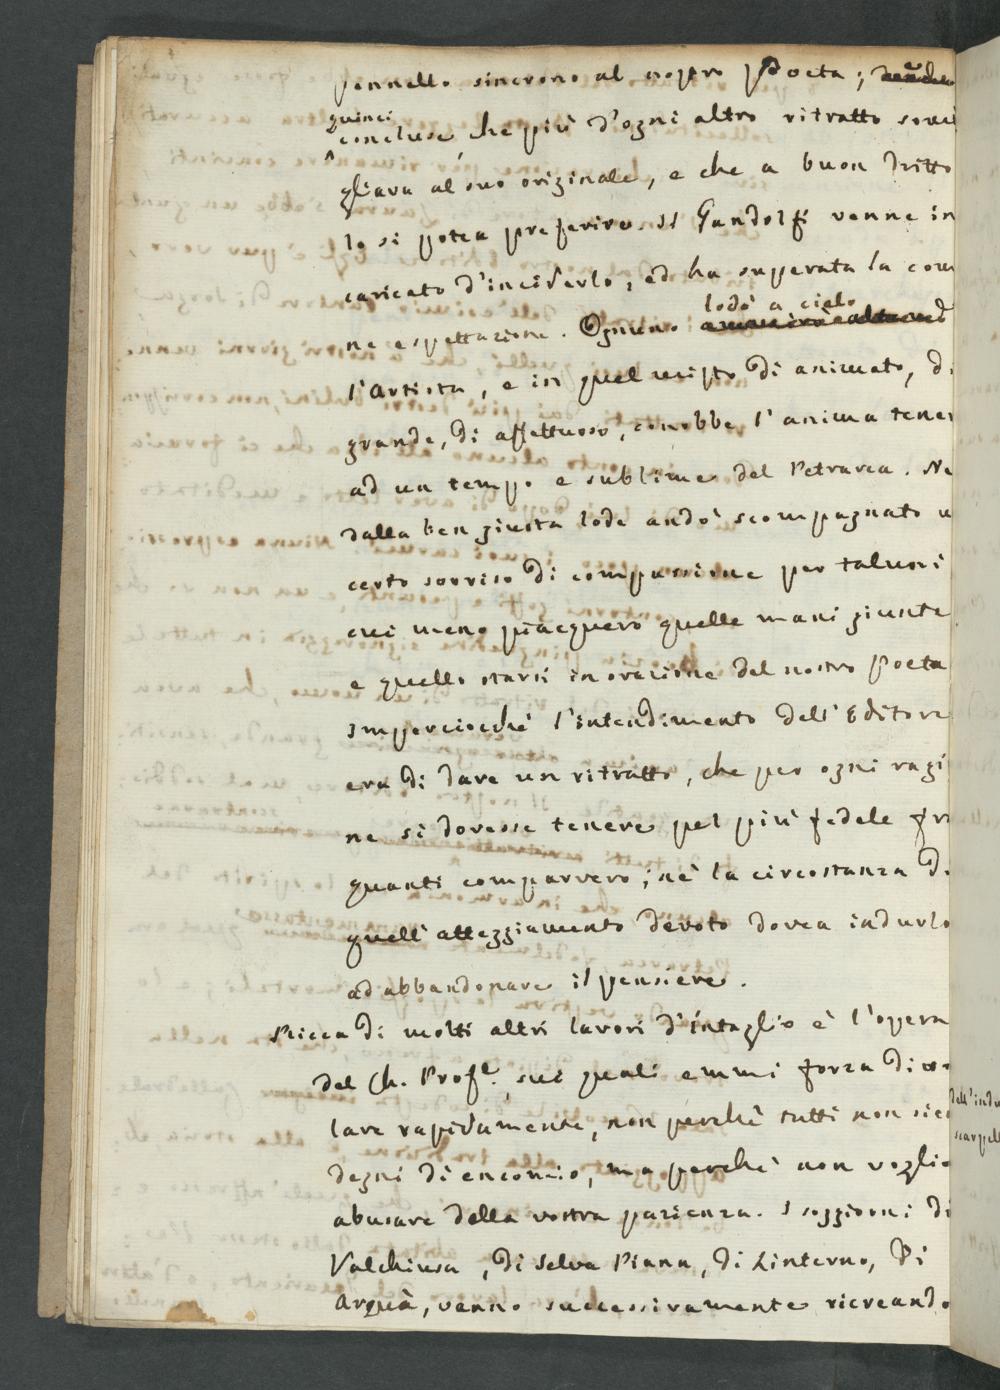 pennello sincrono al nostro Poeta;
quinci
concluse che più d'ogni altro ritratto somi
gliava al suo originale, e che a buon dritto
lo si potea preferire. Il Gandolfi venne in
caricato d'inciderlo, ed ha superata la com
lodò a cielo
ne espettazione. Ognuno
l'Artista, e in quel misto di animato, di
grande, di affettuoso, conobbe l'anima tener
ad un tempo e sublime del Petrarca. Ne
dalla ben giusta lode andò scompagnato u
certo sorriso di compassione per taluni
cui meno piacquero quelle mani giunte
e quello starsi in orazione del nostro Poeta
Imperciocchè l'intendimento dell'Editore
era di dare un ritratto, che per ogni ragi
ne si dovesse tenere pel più fedele fra
quanti comparvero; nè la circostanza di
quell'atteggiamento devoto dovea indurlo
ad abbandonare il pensiere.
Ricca di molti altri lavori d'intaglio è l'opera
del Ch. Profe. sui quali emmi forza di vo
lare rapidamente, non perchè tutti non sien
degni di encomio, ma perchè non voglio
abusare della vostra pazienza. I soggiorni di
Valchiusa, di Selva Piana, di Linterno, di
Arquà, vanno successivamente ricreando